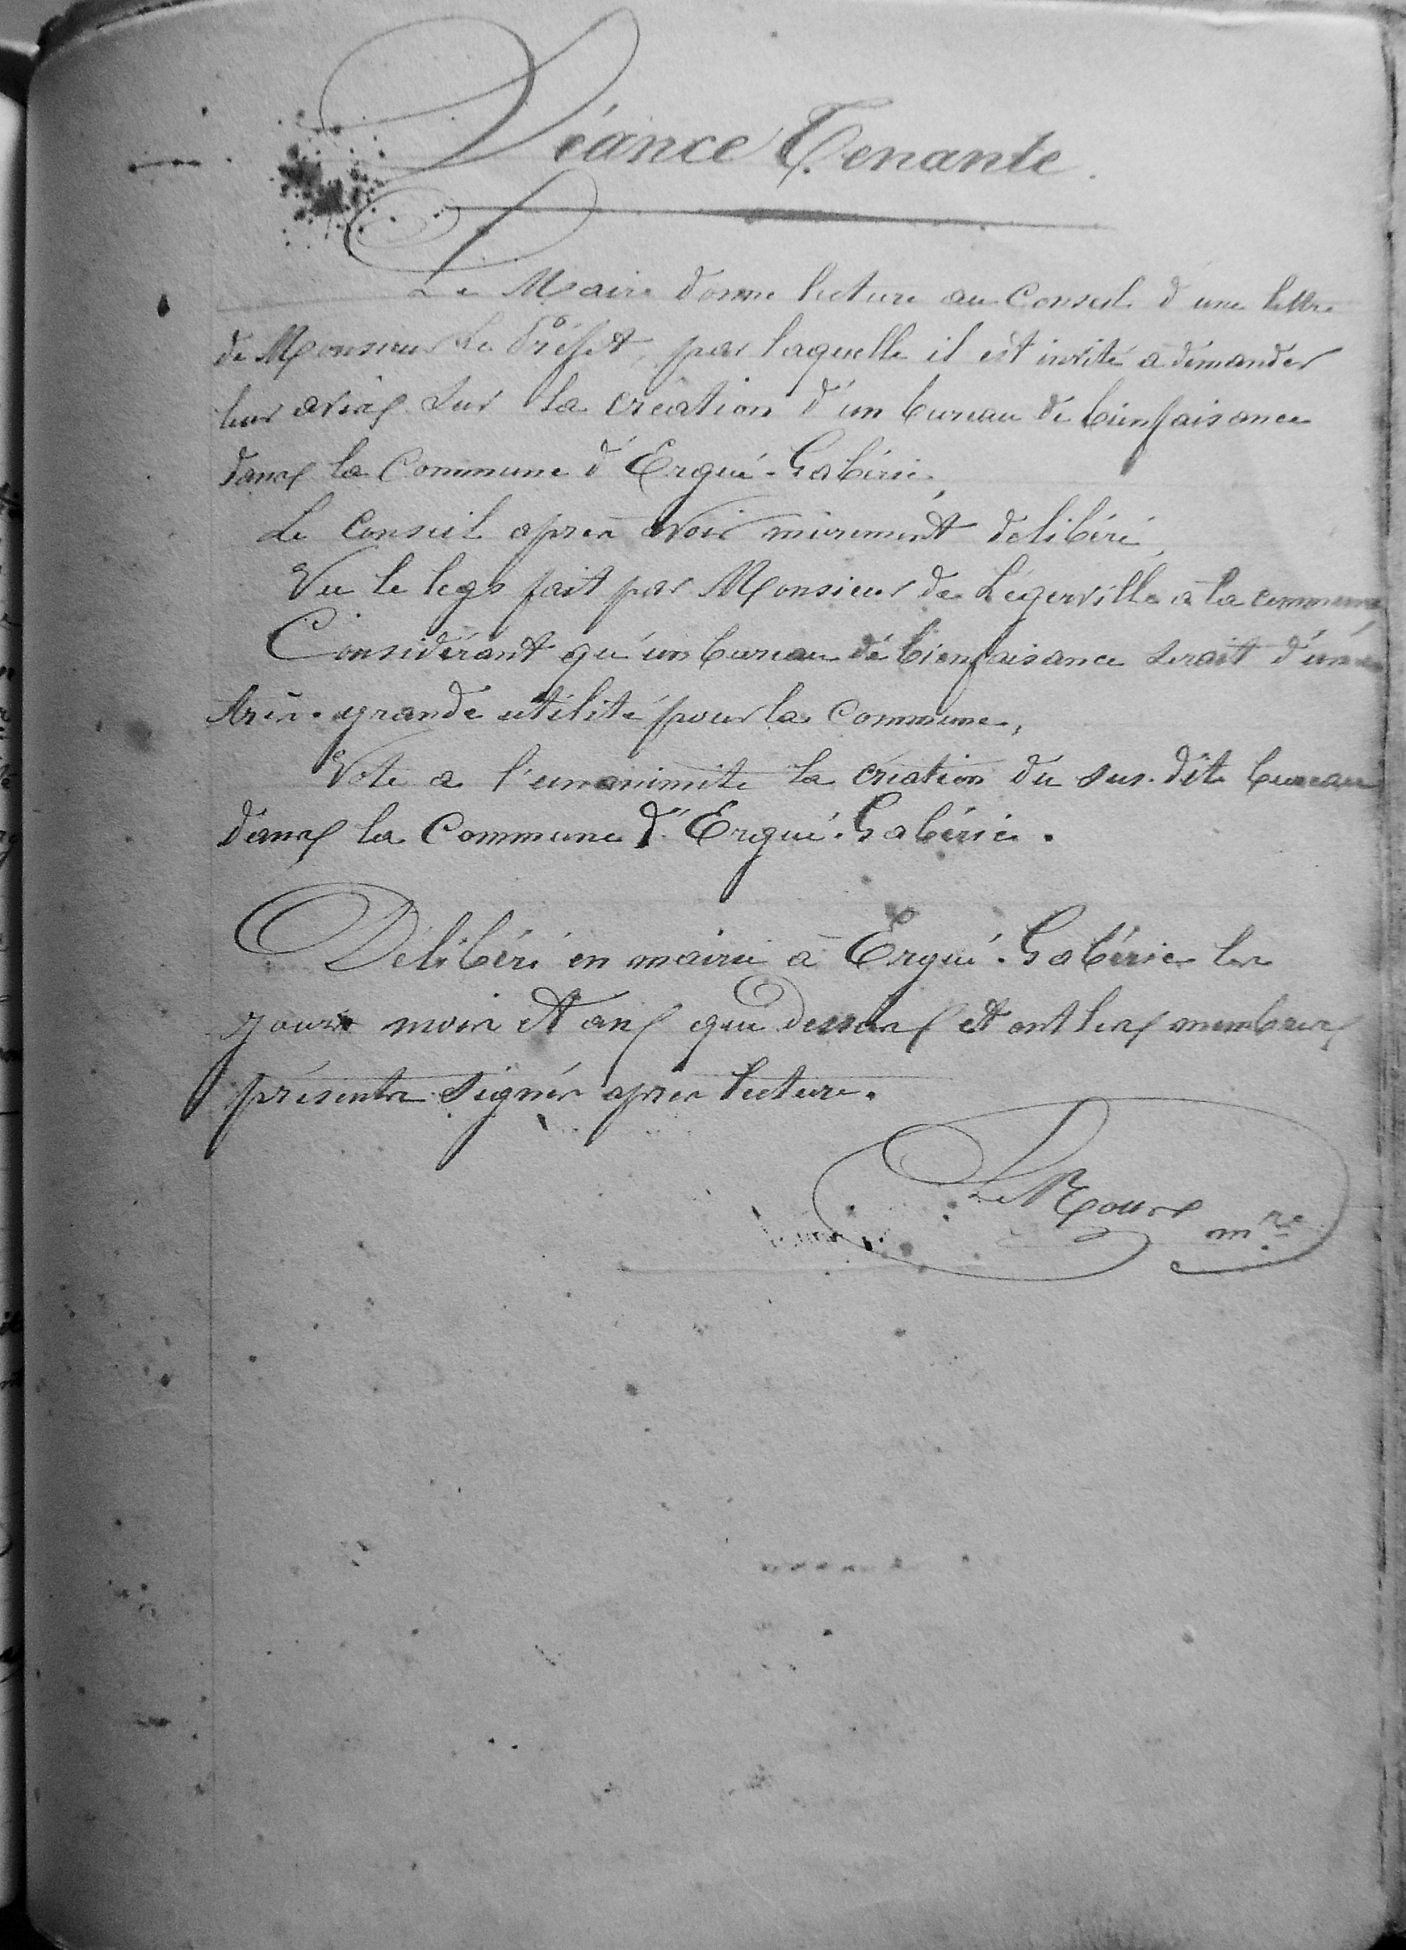 Séance Tenante.
Le Maire donne lecture au Conseil d'une lettre
de Monsieur Le Préfet, par laquelle il est invité à demander
leur avis sur la création d'un bureau de bienfaisance
dans la Commune d'Ergué-Gabéric,
Le Conseil après avoir mûrement délibéré,
Vu le legs fait par Monsieur de Légerville à la commune,
Considérant qu'un bureau de bienfaisance serait d'une
très-grande utilité pour la Commune,
Vote a l'unanimité la création du sus-dit bureau
dans la Commune d'Ergué-Gabéric.
Délibéré en mairie à Ergué-Gabéric les
jours mois et ans que dessus et ont les membres
présents signés après lecture.
Le Roux mre